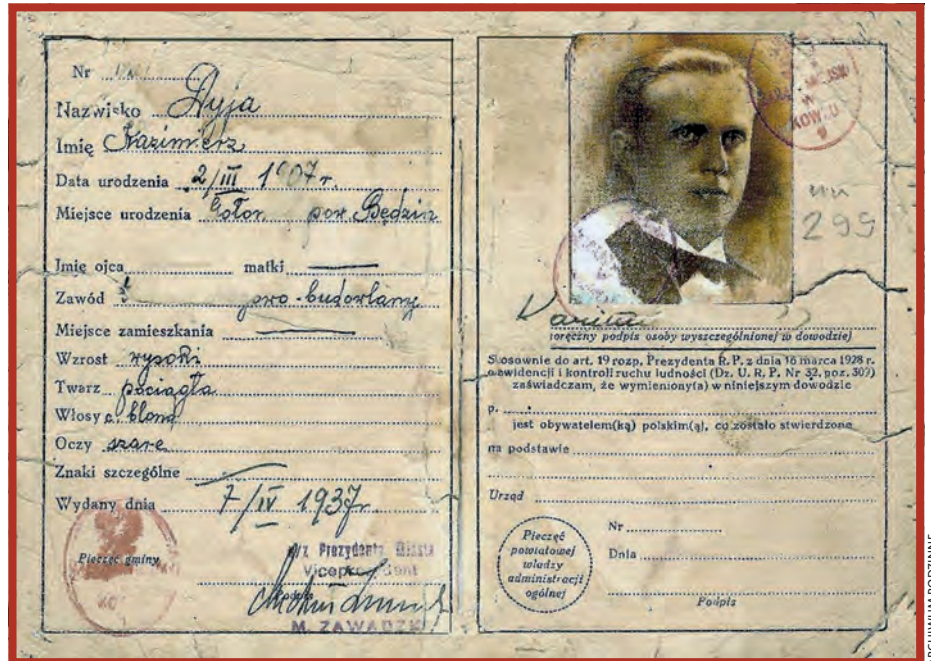 Nr
Nazwisko Dyja
Imię Kazimierz
Data urodzenia 2/III 1907 r.
Miejsce urodzenia pow. Będzin
Imię ojca matki
Zawód budowlany
Miejsce zamieszkania
Wzrost wysoki
Twarz pociągła
Włosy c. blond
Oczy szare
Znaki szczególne
Wydany dnia 7/IV 1937 r.
Pieczęć gminy
wz Prezydenta Miasta
Podpis
M. ZAWADZK
W
299
oręczny podpis osoby wyszczególnionej w dowodzie
Stosownie do art. 19 rozp. Prezydenta R. P. z dnia 16 marca 1928 r.
o ewidencji i kontroli ruchu ludności (Dz. U. R. P. Nr 32, poz. 307)
zaświadczam, że wymieniony(a) w niniejszym dowodzie
p.
jest obywatelem(ką) polskim(ą), co zostało stwierdzone
na podstawie
Urząd
Pieczęć
powiatowej
władzy
administracji
ogólnej
Nr
Dnia
Podpis
ARCHIWUM RODZINNE